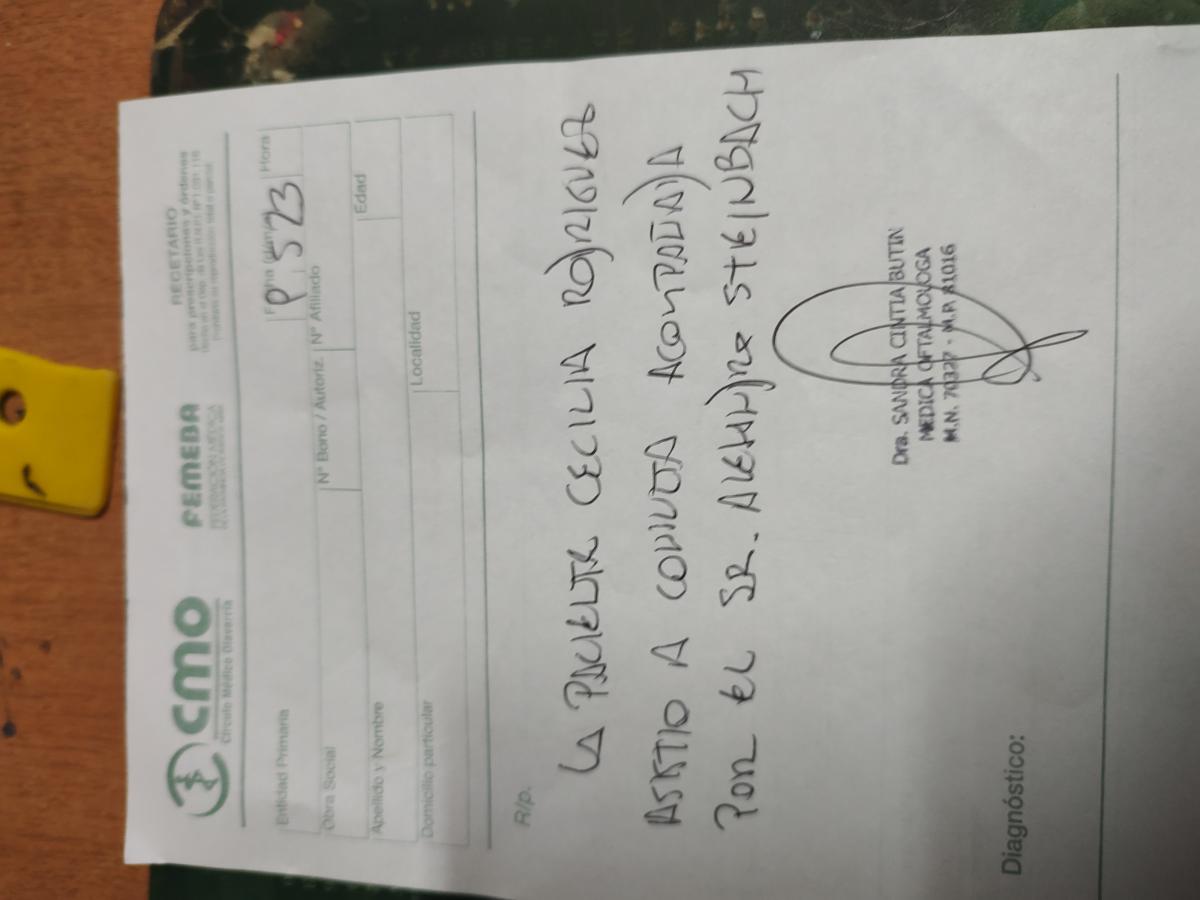 CMO
Círculo Médico Olavarría
FEMEBA
FEDERACIÓN MÉDICA
RECETARIO
para prescripciones y órdenes
Entidad Primaria
Fecha
Hora
9 5 23
Obra Social
N° Bono / Autoriz.
N° Afiliado
Apellido y Nombre
Edad
Domicilio particular
Localidad
R/p.
LA PACIENTE CECILIA RODRIGUEZ
ASISTIO A CONSULTA ACOMPAÑADA
POR EL SR. ALEJANDRO STEINBACH
Dra. SANDRA CINTIA BUTIN
MEDICA OFTALMOLOGA
M.N. 70327 - M.P. 81016
Diagnóstico: